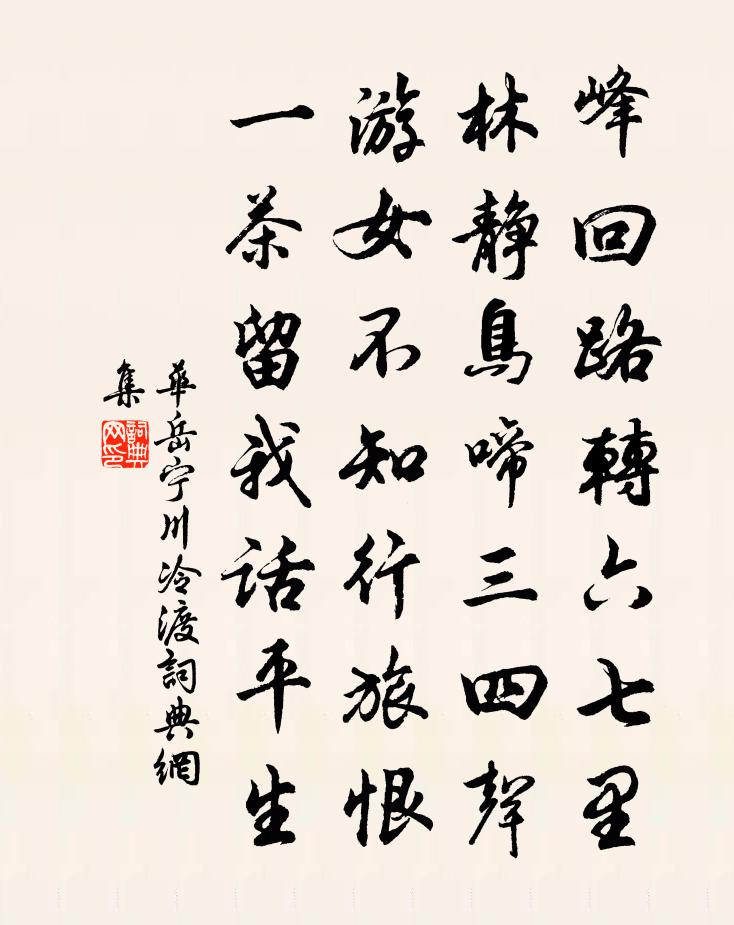 峰回路轉六七里
林静鳥啼三四聲
游女不知行旅恨
一茶留我話平生
華岳宁川冷渡詞典網
集
詞典
网印